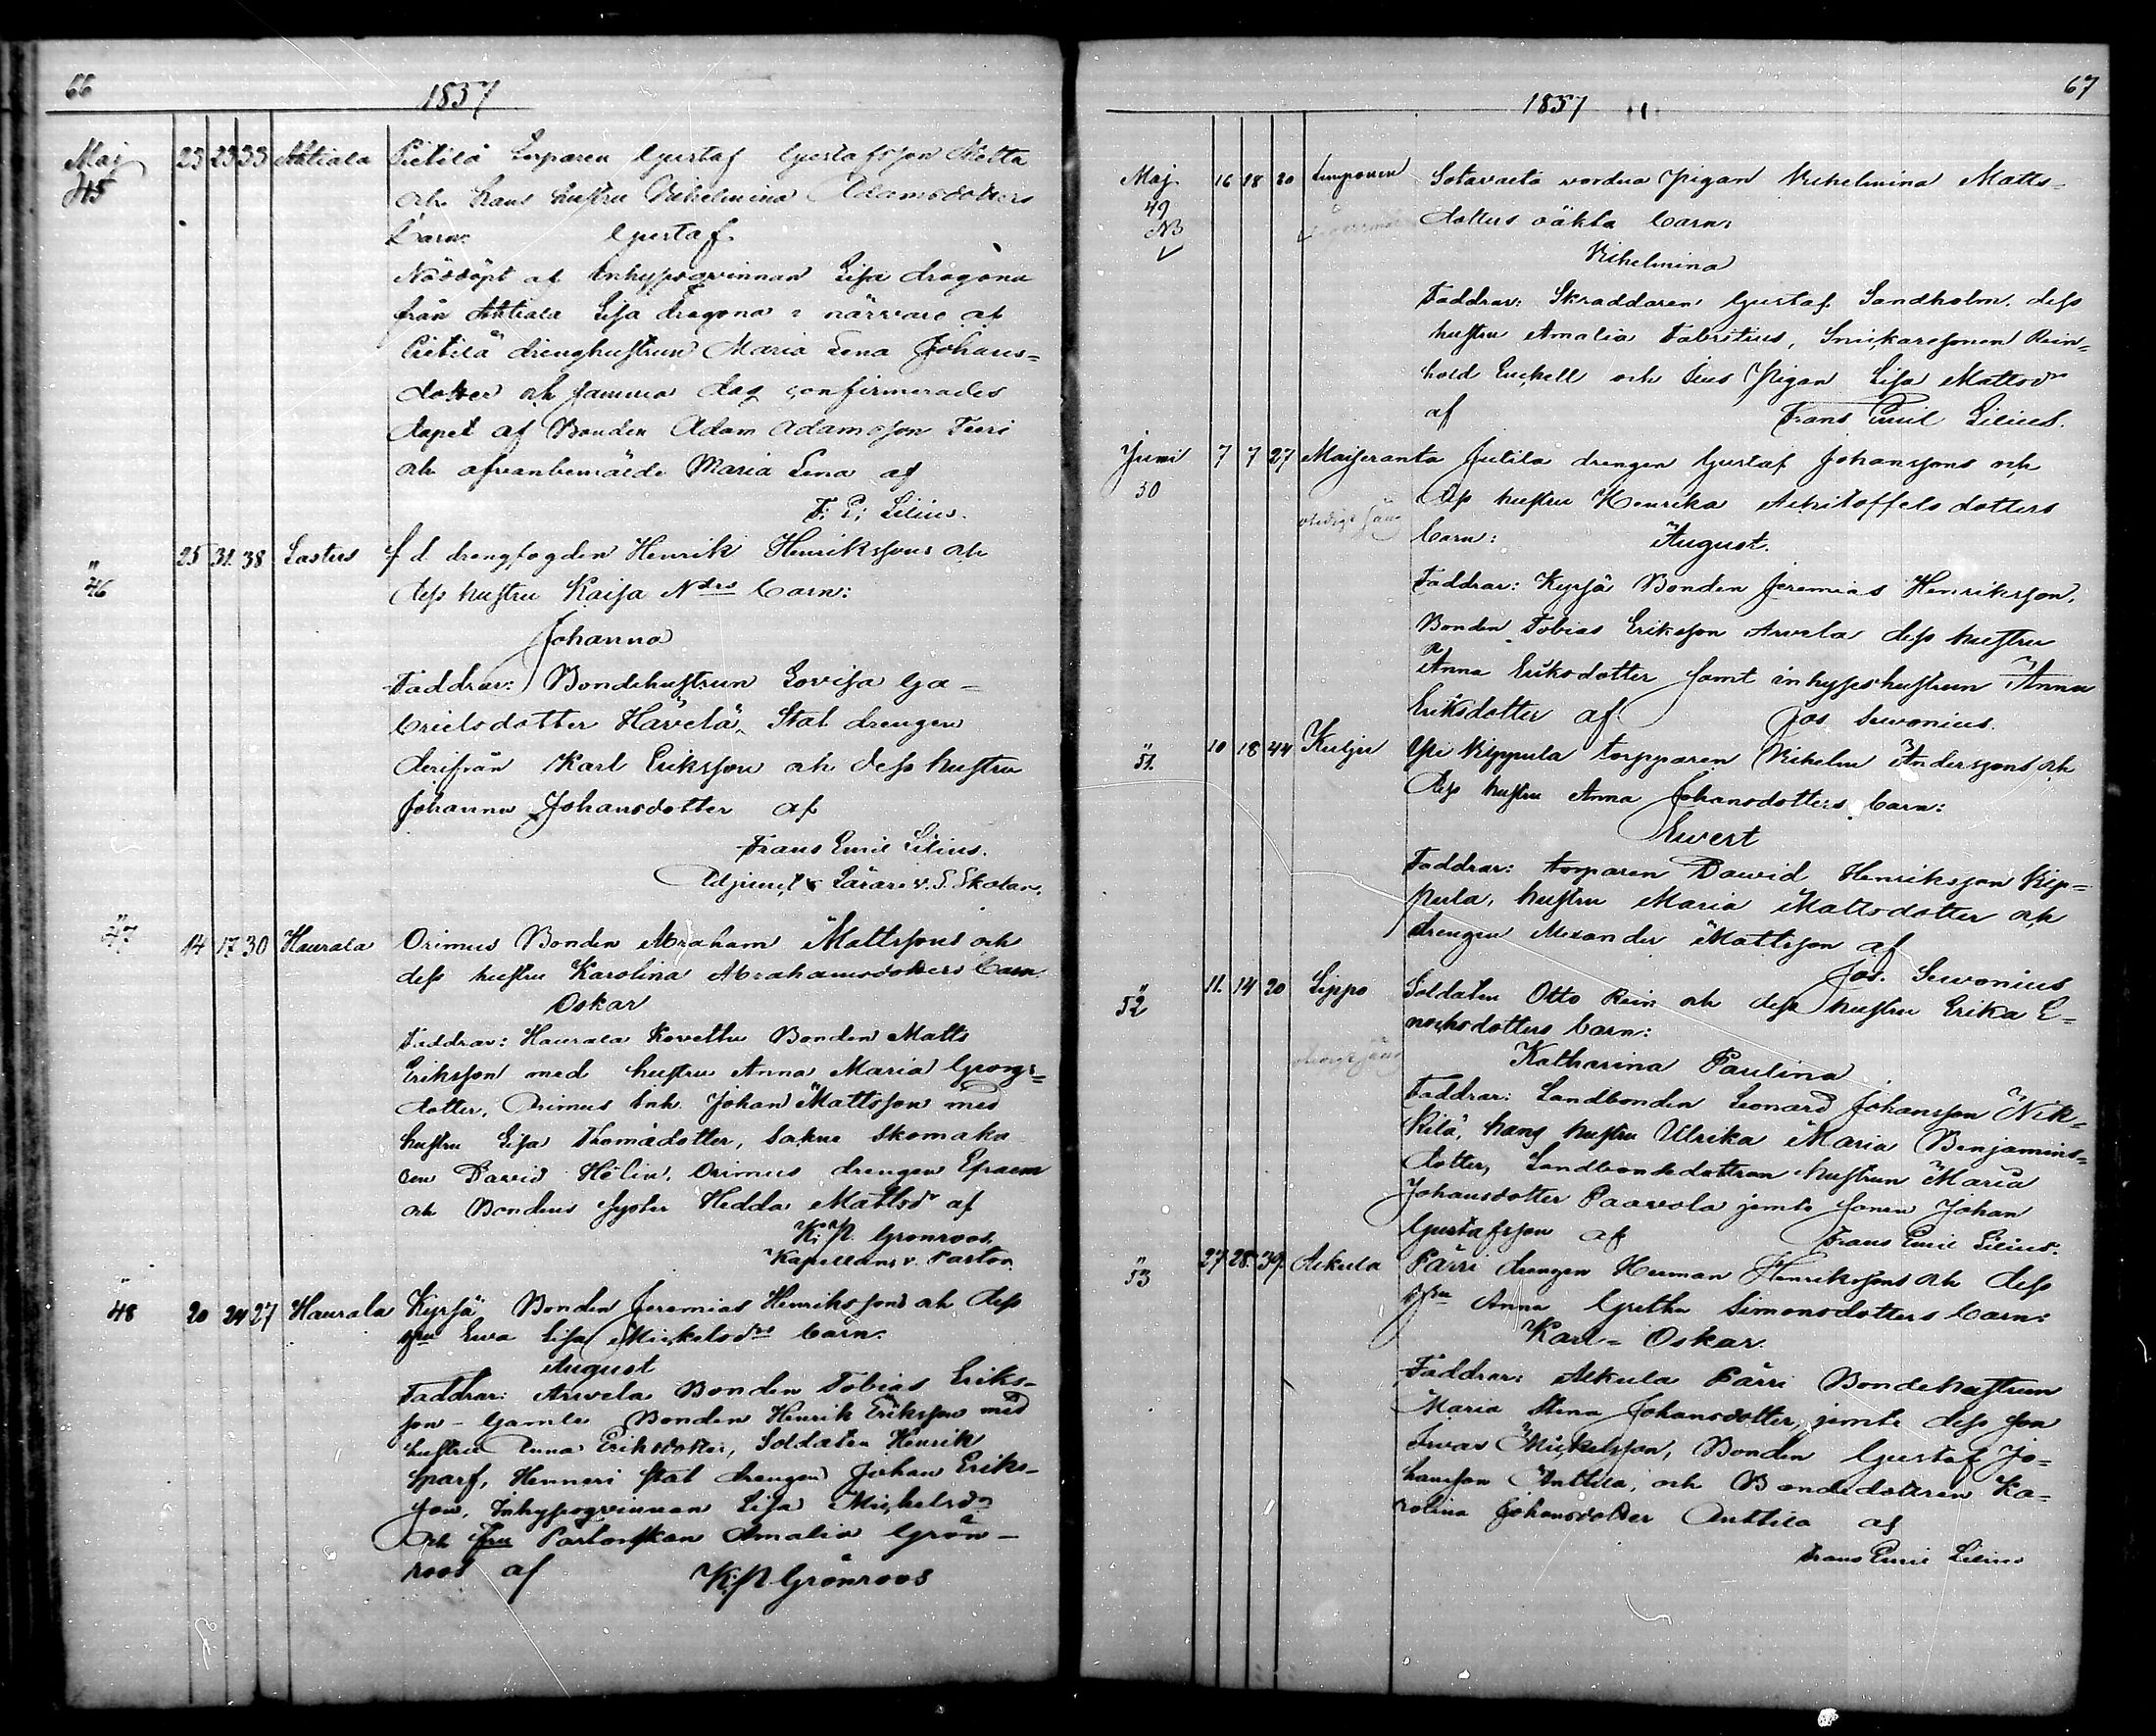 66
1857
Maj 45 23 23 33 Ahtiala Pietilä Torparen Gustaf Gustafsson Motta
och hans hustru Vilhelmina Adamsdotters
barn: Gustaf.
Nöddöpt af Inhysesqvinnan Lisa dragona
från Ahtiala Lisa dragona i närvaro af
Pietilä drenghustrun Maria Lena Johans=
dotter och samma dag confirmerades
dopet af Bonden Adam Adamsson Turi
och ofvanbemälde Maria Lena af
F: E: Lilius.
" 46 25 31 38 Lastus f d drengfogden Henrik Henrikssons och
dess hustru Kaisa Ndrs barn:
Johanna
Faddrar: Bondehustrun Lovisa Ga=
brielsdotter Hävelä, Stat drengen
derifrån Karl Eriksson och dess hustru
Johanna Johansdotter af
Frans Emil Lilius.
Adjunct & Lärare v. S. Skolan.
" 47 14 17 30 Haurala Orimus Bonden Abraham Mattssons och
dess hustru Karolina Abrahamsdotters barn
Oskar
Faddrar: Haurala Kovettu Bonden Matts
Eriksson med hustru Anna Maria Georgs=
dotter, Orimus Inh. Johan Mattsson med
hustru Lisa Thomasdotter, Sokne Skomaka
ren David Hölin, Orimus drengen Efraem
och Bondens syster Hedda Mattsdr af
K: A. Grönroos
Kapellans v. Pastor.
" 48 20 24 27 Haurala Kyrsä Bonden Jeremias Henrikssons och dess
hru Ewa Lisa Mickelsdrs barn.
August
Faddrar: Arvela Bonden Tobias Eriks-
son - Gamla Bonden Henrik Eriksson med
hustru Anna Eriksdotter, Soldaten Henrik
Sparf, Henneri Stat drengen Johan Eriks-
son, Inhysesqvinnan Lisa Mickelsdr
och fru Pastorskan Amalia Grön-
roos af K: A. Grönroos
67
1857
Maj 49 NB 16 18 20 Simponen Sotavalta vordna Pigan Vilhelmina Matts=
dotters oäkta barn:
Vilhelmina
Faddrar: Skräddaren Gustaf Sandholm, dess
hustru Amalia Fabritius, Snickaresonen Rein=
hold Enckell och Pigan Lisa Mattsdr
af Frans Emil Lilius.
Juni 50 7 7 27 Maijeranta Jutila drengen Gustaf Johanssons och
dess hustru Henrika Kristoffelsdotters
barn: August.
Faddrar: Kyrsä Bonden Jeremias Henriksson,
Bonden Tobias Eriksson Arvela dess hustru
Anna Eriksdotter samt inhyseshustrun Anna
Eriksdotter af Jos Sevonius.
" 51. 10 18 44 Kulju Yli Kippula torpparen Vilhelm Anderssons och
dess hustru Anna Johansdotters barn:
Ewert
Faddrar: torparen David Henriksson Kip=
pula, hustru Maria Mattsdotter och
drengen Alexander Mattsson af
Jos. Sevonius
" 52 11. 14 20 Lippo Soldaten Otto Rein och dess hustru Erika E=
nochsdotters barn:
Katharina Paulina
Faddrar: Landbonden Leonard Johansson Nik=
kilä, hans hustru Ulrika Maria Benjamins=
dotter, Landbondedottran hustrun Maria
Johansdotter Paavola jemte sonen Johan
Gustafsson af Frans Emil Lilius.
" 53 27. 28. 39. Aikula Pärri drengen Herman Henrikssons och dess
hru Anna Gretha Simonsdotters barn:
Karl-Oskar.
Faddrar: Aikula Pärri Bondehustrun
Maria Stina Johansdotter, jemte dess son
Ivar Mickelsson, Bonden Gustaf Jo=
hansson Anttila, och Bondedottren Ka=
rolina Johansdotter Anttila af
Frans Emil Lilius